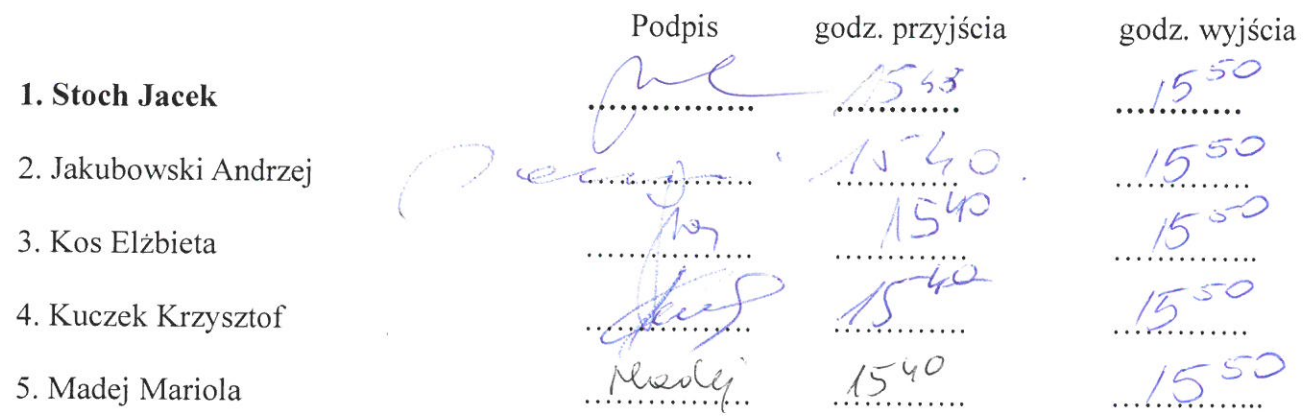 Podpis godz. przyjścia godz. wyjścia
1. Stoch Jacek 15 43 15 50
2. Jakubowski Andrzej 15 40 15 50
3. Kos Elżbieta 15 40 15 50
4. Kuczek Krzysztof 15 40 15 50
5. Madej Mariola Madej 15 40 15 50